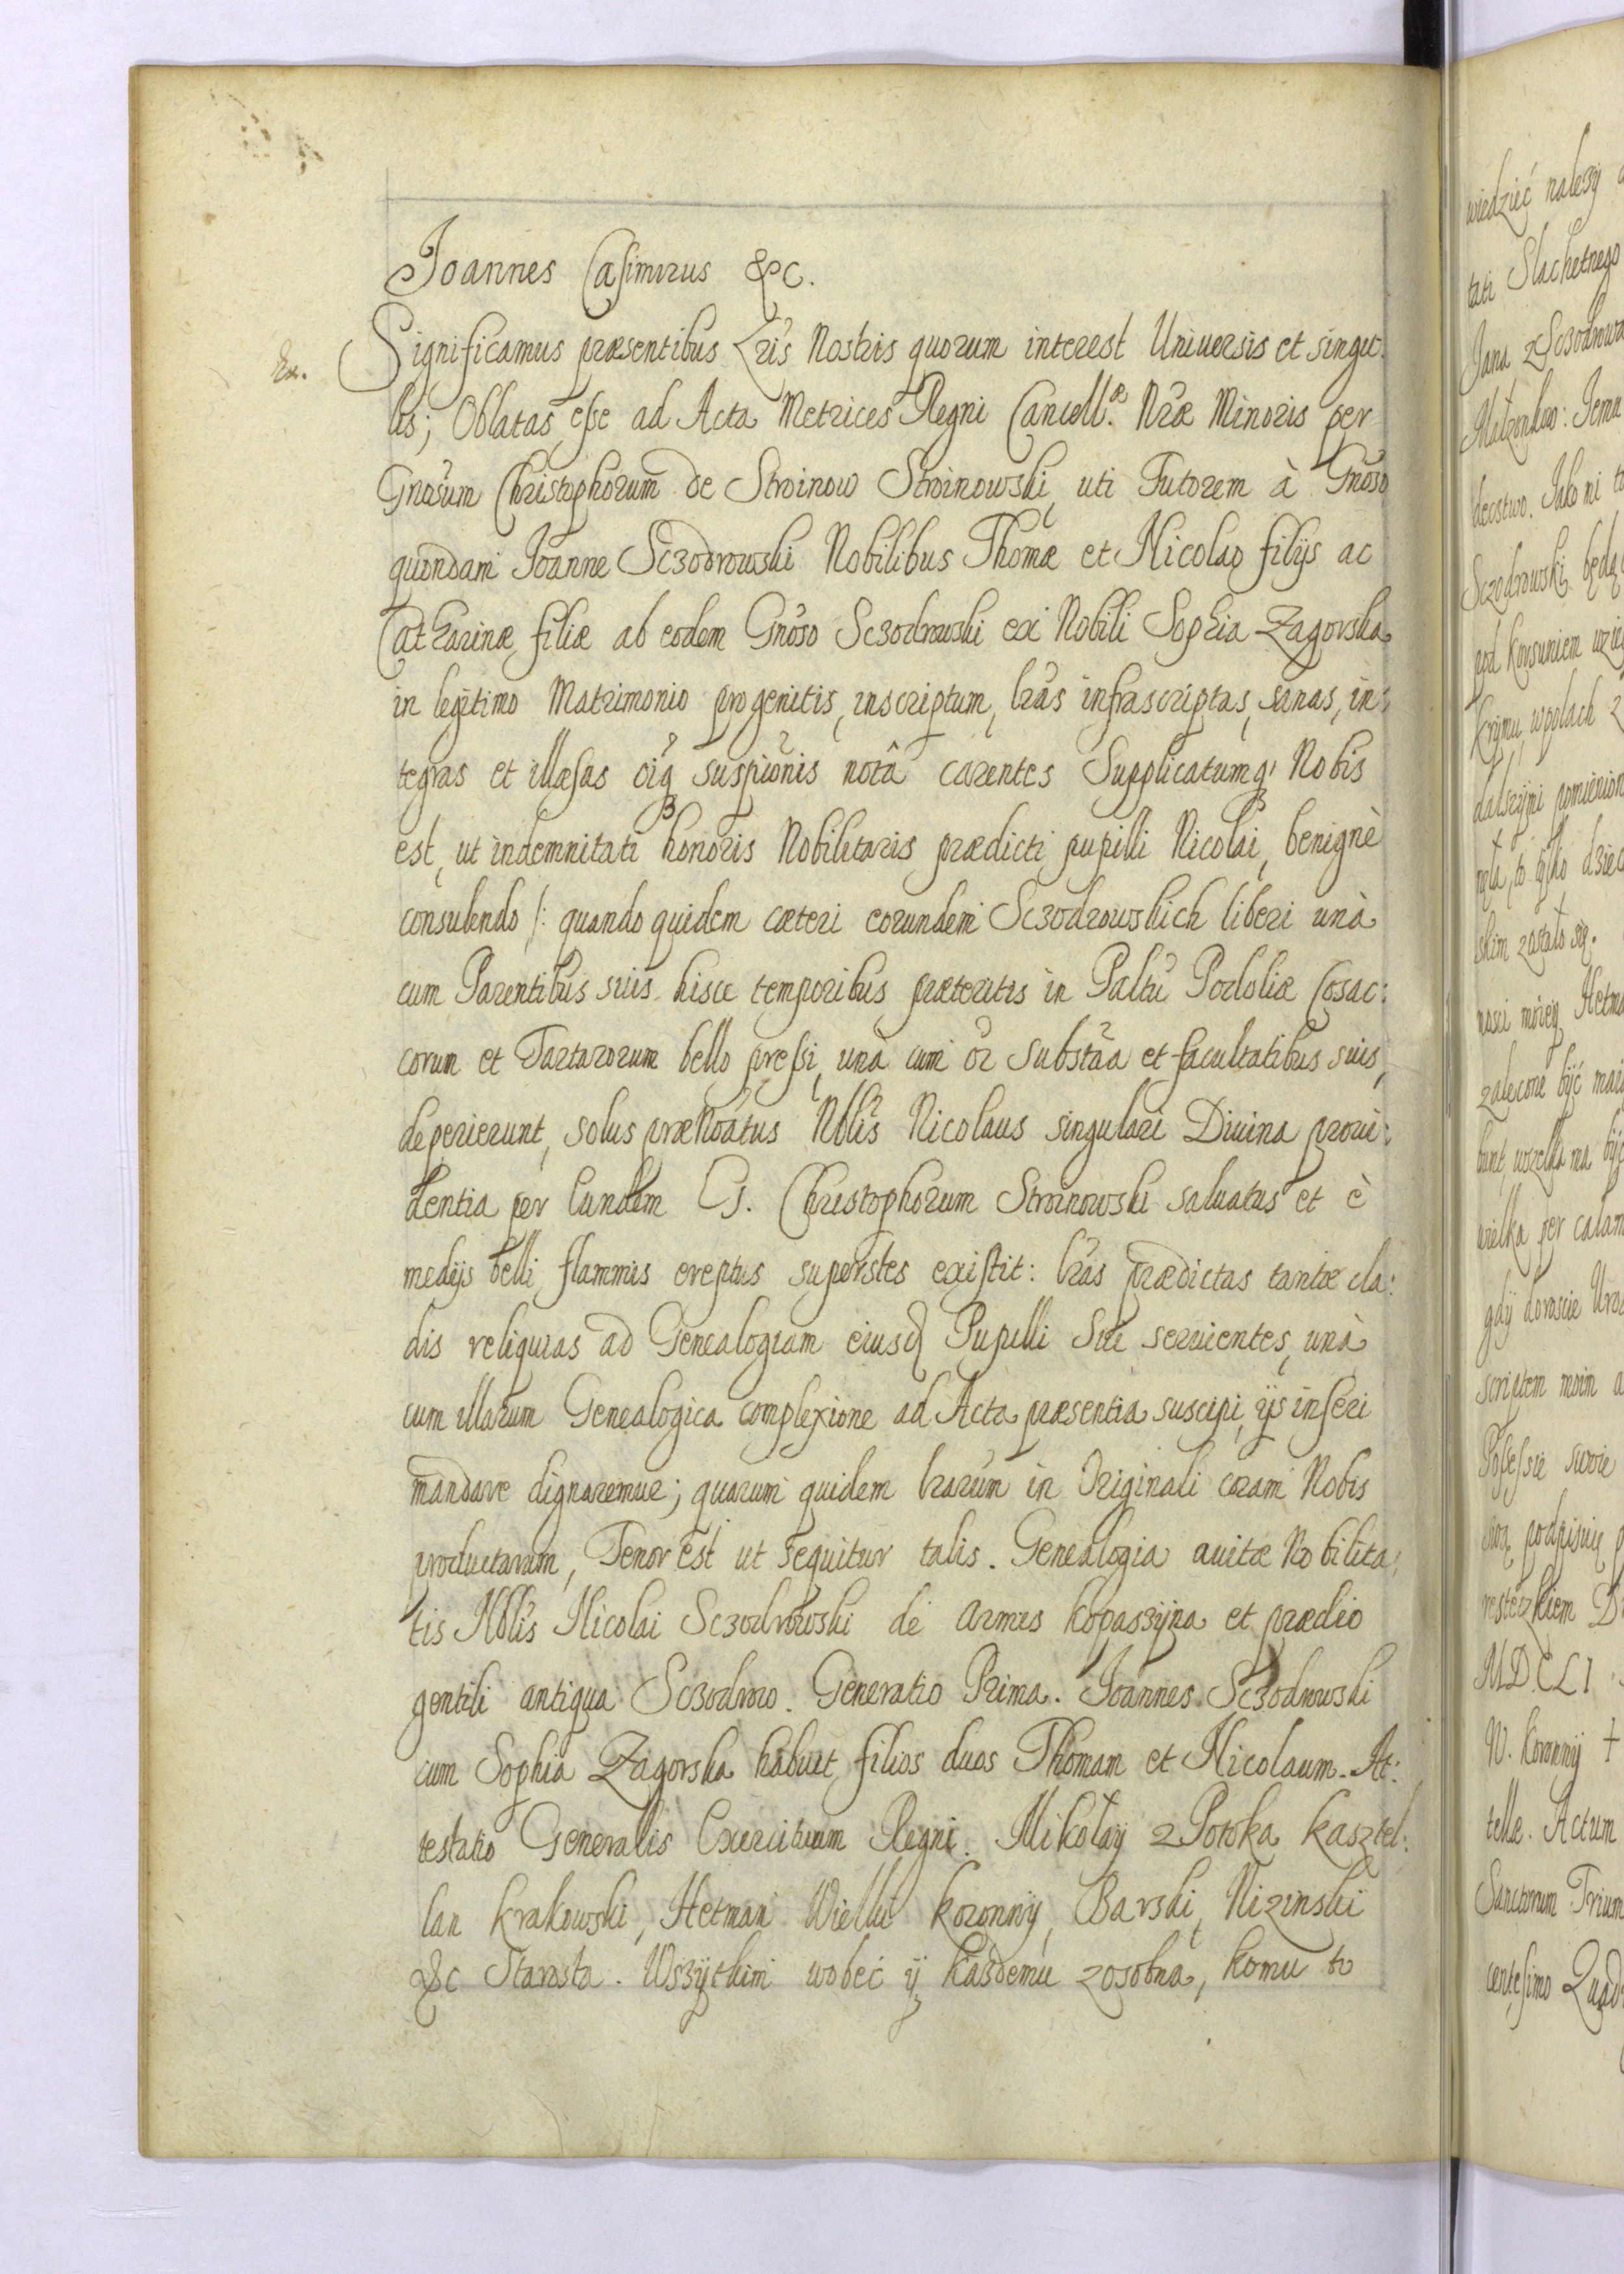 Joannes Casimirus &c.
Ex.
Significamus præsentibus Lr̃is Nostris quorum interest Universis et singu:
lis; Oblatas esse ad Acta Metrices Regni Cancell.æ Nr̃æ Minoris per
Gnõsum Christophorum de Stroinow Stroinowski, uti Tutorem à Gnõso
quondam Joanne Sczodrowski Nobilibus Thomæ et Nicolao filijs ac
Catharinæ filiæ ab eodem Gnõso Sczodrowski ex Nobili Sophia Zagorska
in legitimo Matrimonio progenitis, inscriptum, lr̃as infrascriptas, sanas, in:
tegras et illæsas oĩq3 suspiõnis notâ carentes Supplicatumq3 Nobis
est, ut indemnitati honoris Nobilitaris prædicti pupilli Nicolai, benignè
consulendo /: quando quidem cæteri eorundem Sczodrowskich liberi unà
cum Parentibus suis hisce temporibus præteritis in Paltũ Podoliæ Cosac:
corum et Tartarorum bello pressi, unà cum oĩ Substãa et facultatibus suis,
deperierunt, solus prænoãtus Nblĩs Nicolaus singulari Divina provi:
dentia per Eundem G. Christophorum Stroinowski salvatus et è
medijs belli flammis ereptus superstes existit: lr̃as prædictas tantæ cla:
dis reliquias ad Genealogiam eiusd Pupilli Sui servientes, unà
cum illarum Genealogica complexione ad Acta præsentia suscipi, ijs inseri
mandare dignaremur; quarum quidem lrarum in Originali coram Nobis
productarum, Tenor est ut sequitur talis. Genealogia avitæ Nobilita:
tis Nblis Nicolai Sczodrowski de armis Kopaszyna et prædio
gentili antiqua Sczodrow. Generatio Prima. Joannes Sczodrowski
cum Sophia Zagorska habuit filios duos Thomam et Nicolaum. At:
testatio Generalis Exercituum Regni. Mikołay z Potoka Kasztel:
lan Krakowski, Hetman Wielki Koronny, Barski, Nizinski
&c Starosta. Wszytkim wobec y kazdemu zosobna, komu to
wiedzieć należy
tati Slachetnego
Jana z Sczodrowa
Małzonków: Jemu
dectwo. Jako ni
Sczodrowski będą
pod Korsuniem
Krymu, w polach
dalszymi
to tylko
skim zostało się.
mosci moiey Hetma
zalecone być
bunt, wszelka ma być
wielka per calam
gdy doroscie
scriptem moim
Possessie swoie
podpisuię
Di
MDCLI
W. Koronny +
tellæ. Actum
Sanctorum Trium
centesimo Quad